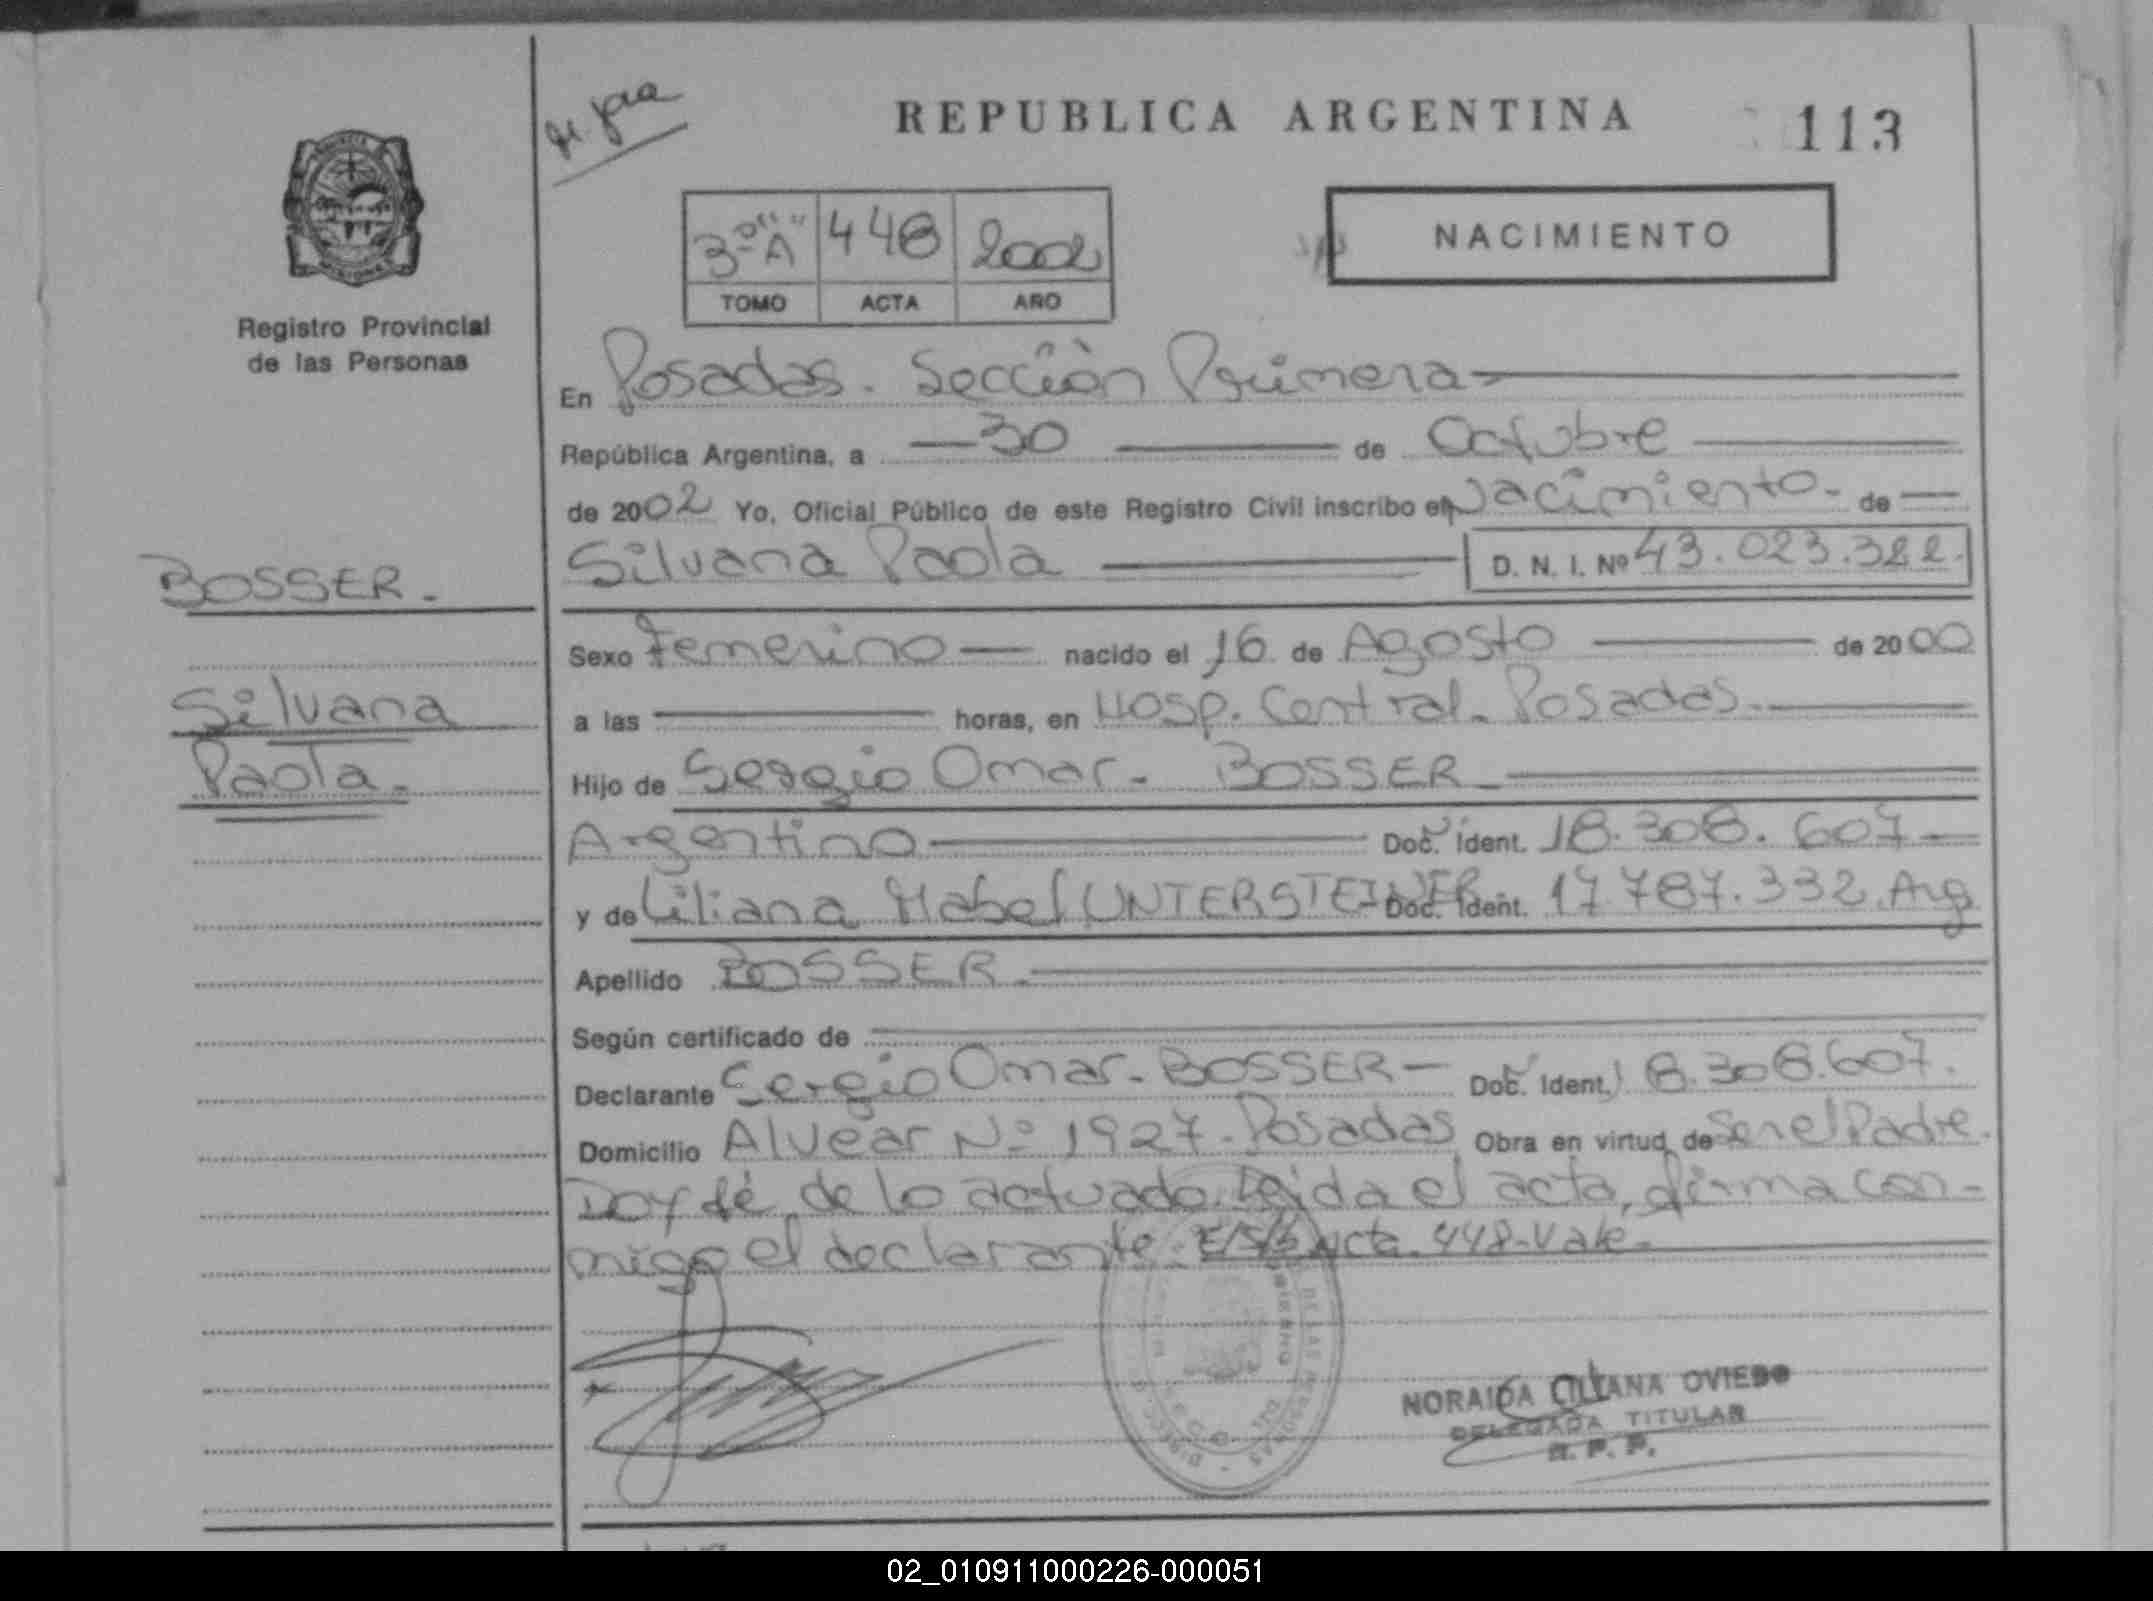 REPUBLICA ARGENTINA
113
NACIMIENTO
3º "A" 448 2002
TOMO ACTA AÑO
Registro Provincial
de las Personas
En Posadas. Sección Primera
República Argentina, a 30 de Octubre
de 2002 Yo, Oficial Público de este Registro Civil inscribo el Nacimiento de
Silvana Paola D. N. I. Nº 43.023.322.
BOSSER.
Silvana
Paola.
Sexo Femenino nacido el 16 de Agosto de 2000
a las horas, en Hosp. Central. Posadas.
Hijo de Sergio Omar. BOSSER
Argentino Doc. Ident. 18.308.607
y de Liliana Mabel UNTERSTEINER Doc. Ident. 17.787.332. Arg
Apellido BOSSER.
Según certificado de
Declarante Sergio Omar. BOSSER Doc. Ident. 18.308.607.
Domicilio Alvear Nº 1927. Posadas Obra en virtud de Ser el Padre.
Doy fé de lo actuado. Leida el acta, firma con-
migo el declarante. E/S/b Acta 448. Vale.
NORAIDA LILIANA OVIEDO
DELEGADA TITULAR
R. P. P.
02_010911000226-000051